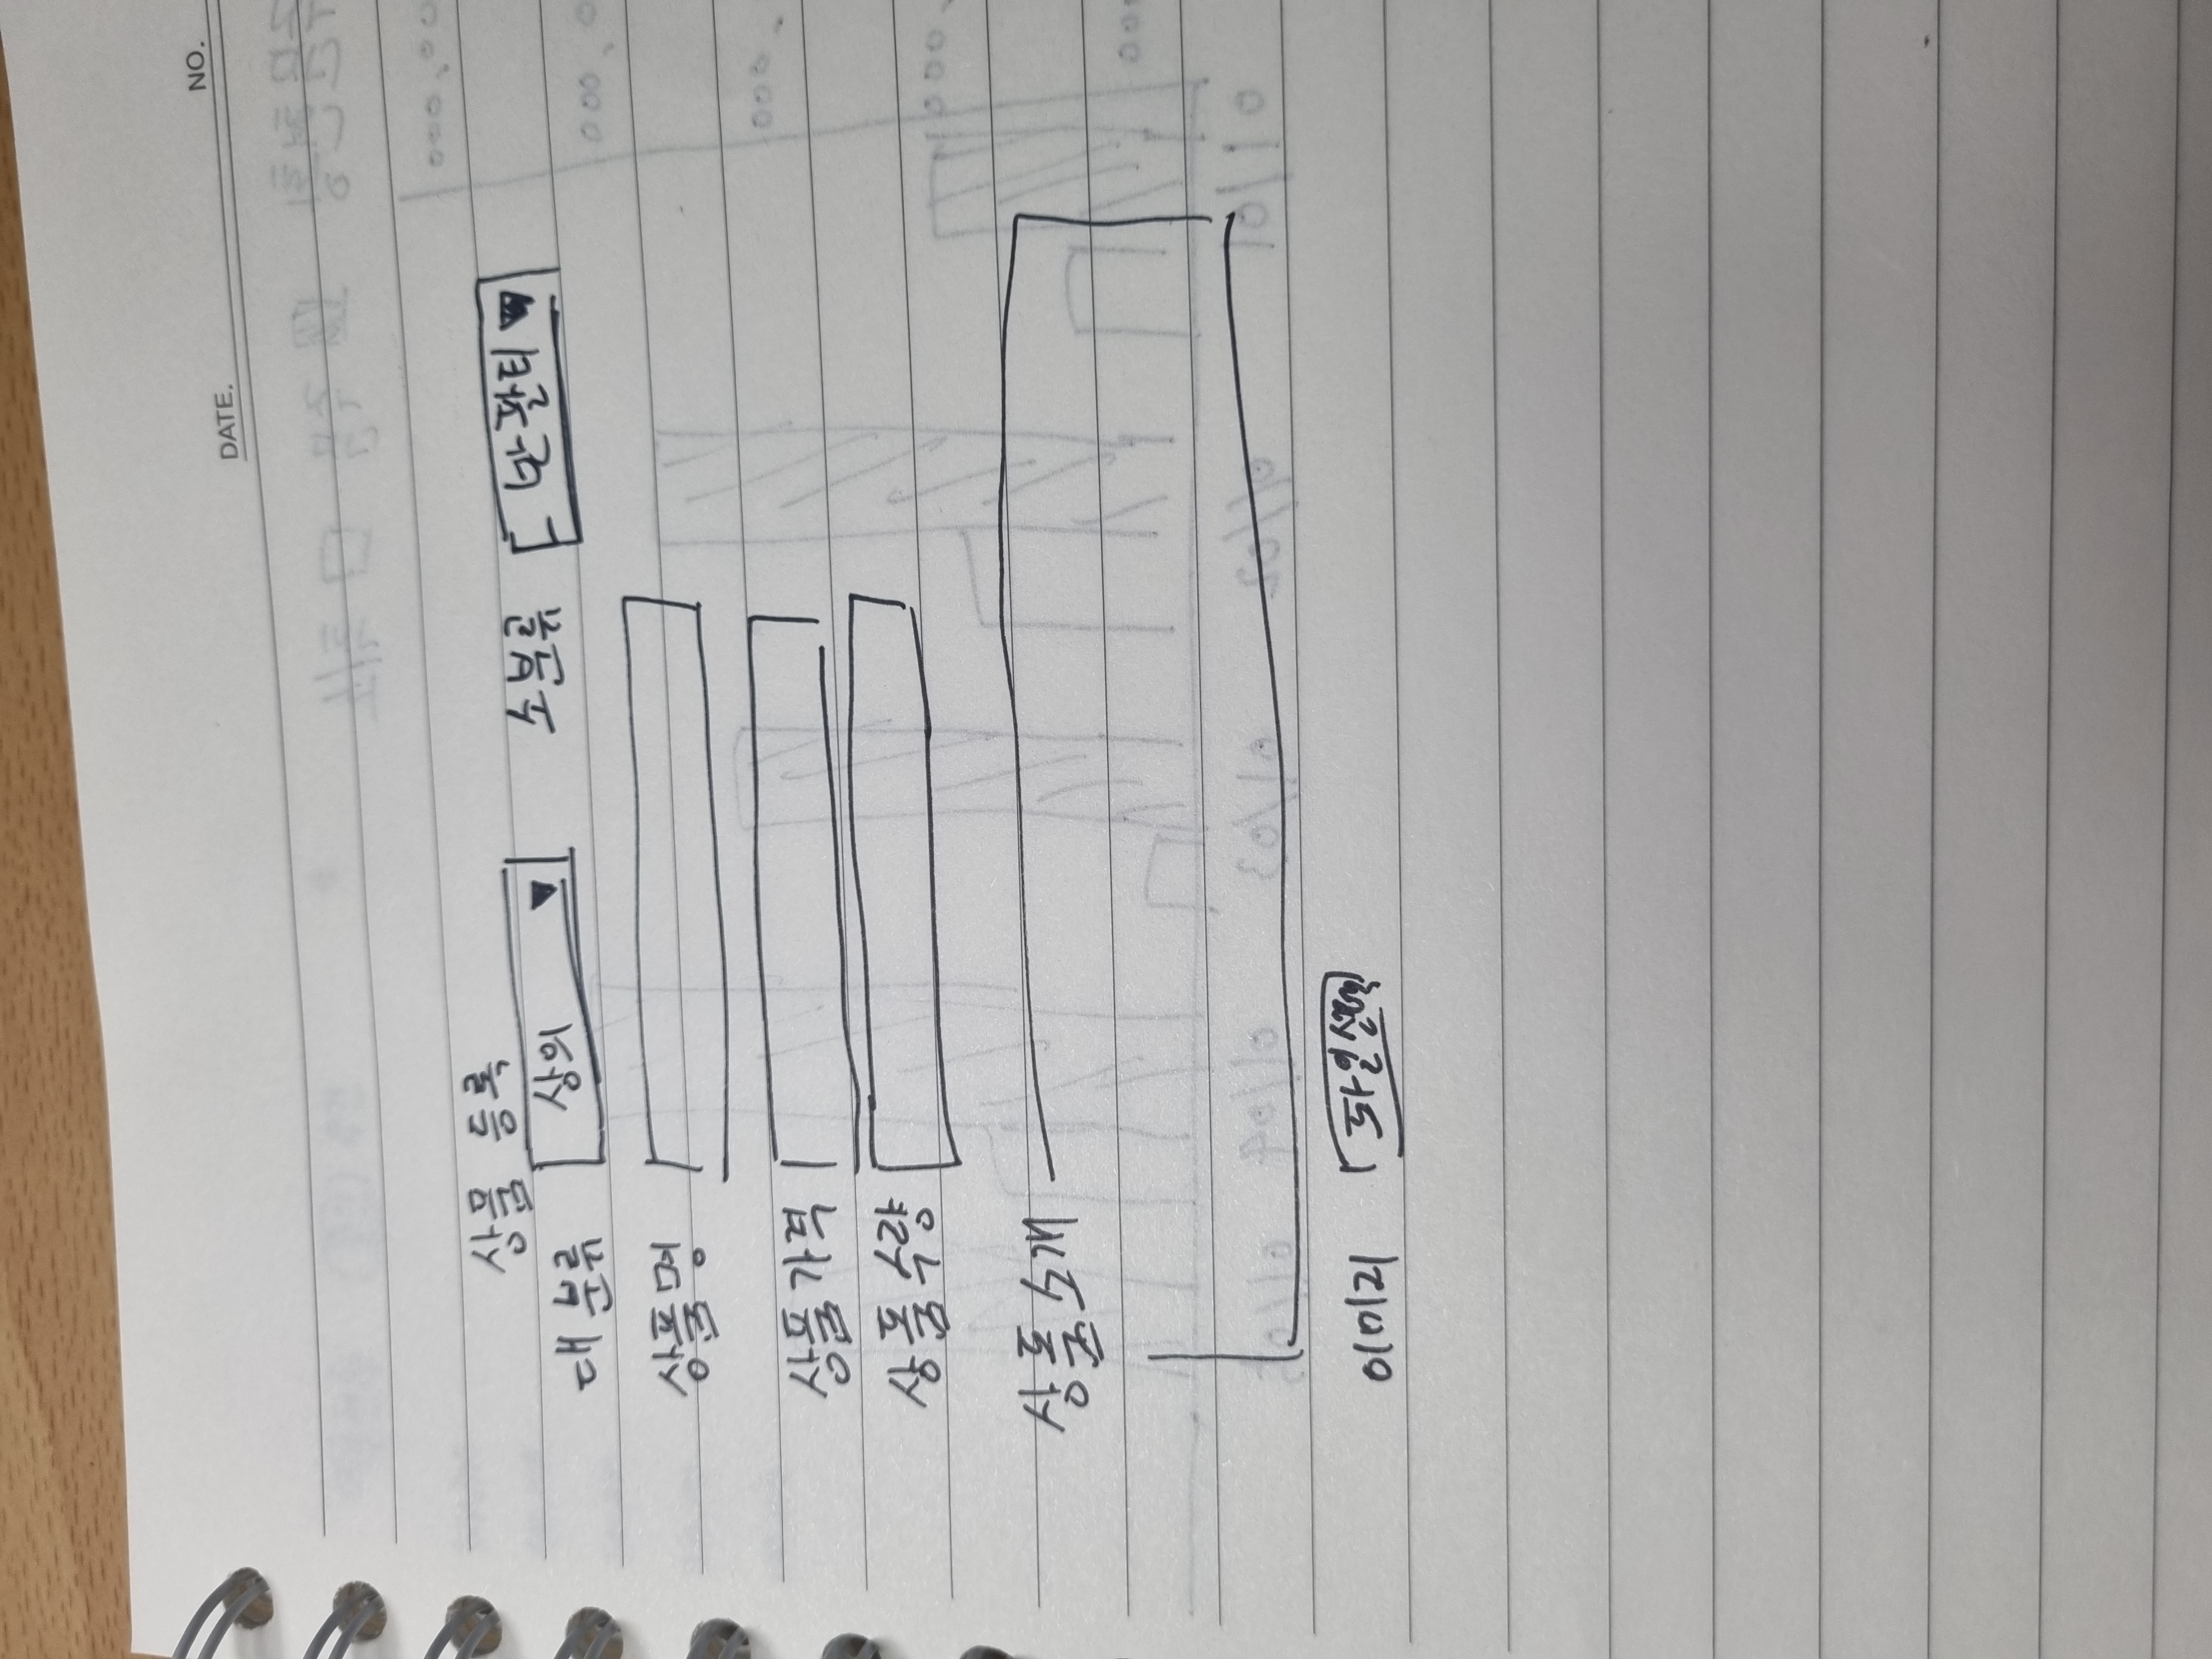 DATE.
NO.
상품 등록
대분류 상의 ▼ 소분류 반팔티 ▼
상품명
상품가격
상품수량
상품소개
이미지 파일선택